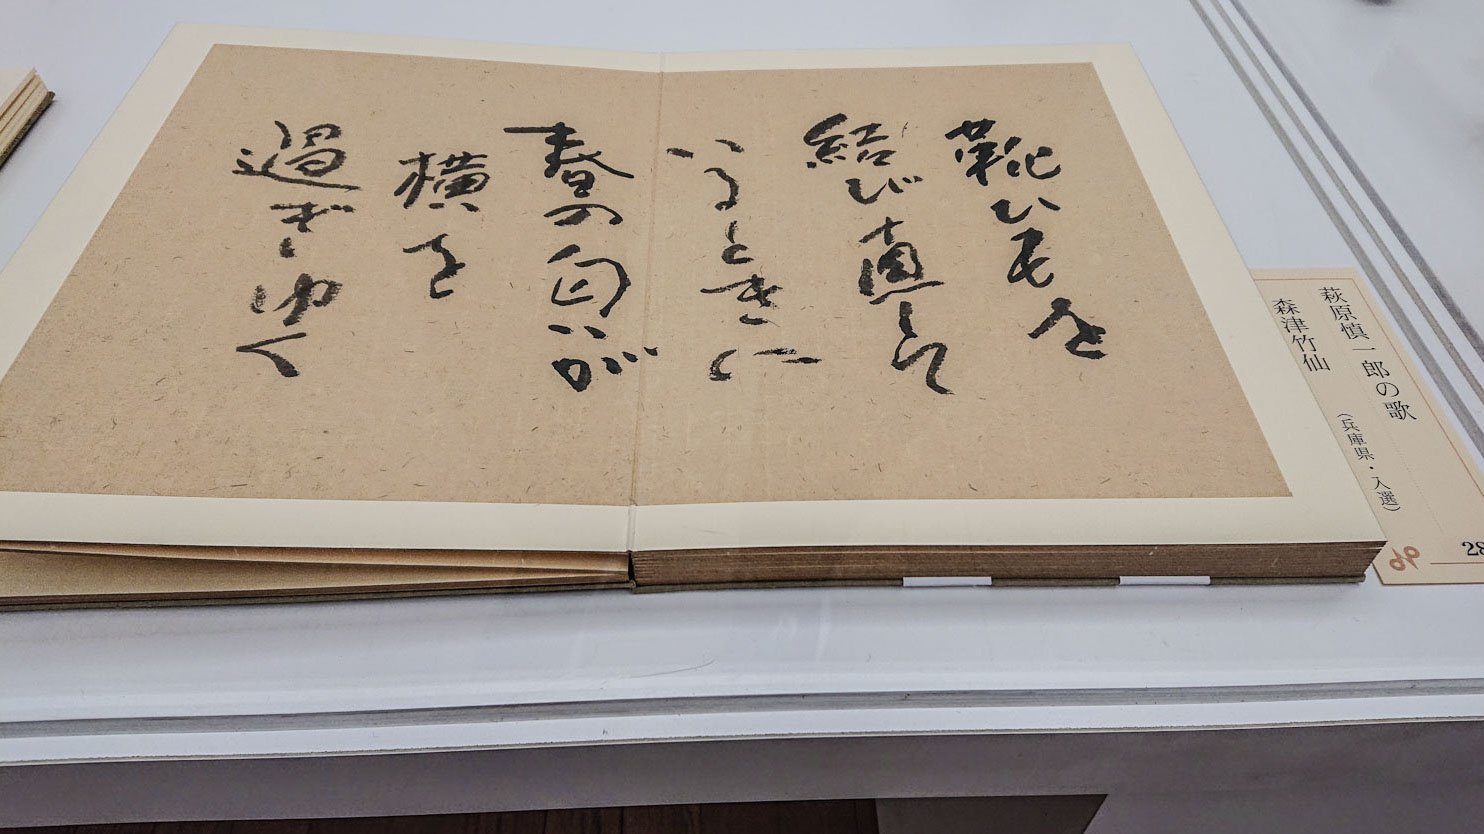 靴ひもを
結び直して
いるときに
春の匂いが
横を
過ぎゆく
萩原慎一郎の歌
森津竹仙
（兵庫県・入選）
28
96